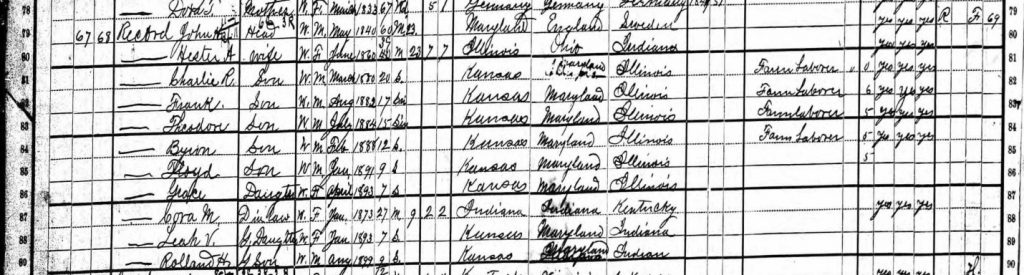 78 Dora T. Mother W. F. March 1833 67 Wd 5 1 Germany Germany Germany yes yes yes 78
79 67 68 Record John Head W. M. May 1840 60 M 23 Maryland England Sweden yes yes yes R F 69 79
80 — Hester A. Wife W. F. June 1860 M 23 7 7 Illinois Ohio Indiana yes yes yes
81 — Charlie R. Son W. M. March 1880 20 S. Kansas Maryland Illinois Farm Laborer 0 yes yes yes 81
82 — Frank. Son W. M. Aug 1882 17 Kansas Maryland Illinois Farm Laborer 6 yes yes yes 82
83 — Theodore Son W. M. July 1884 15 Kansas Maryland Illinois Farm Laborer 5 yes yes yes 83
84 — Byron Son W. M. Feb. 1888 12 S. Kansas Maryland Illinois Farm Laborer 5 yes yes yes 84
85 — Floyd Son W. M. Jan 1891 9 S Kansas Maryland Illinois 5 85
86 — Grace Daughter W. F. April 1893 7 S. Kansas Maryland Illinois 86
87 — Cora M. D in law W. F. Jan. 1873 27 M 9 2 2 Indiana Indiana Kentucky yes yes yes 87
88 — Leah V. G. Daughter W. F. Jan 1893 7 S. Kansas Maryland Indiana 88
— Rolland H. G Son W. M. Aug 1899 9 S. Kansas Maryland Indian
90 90